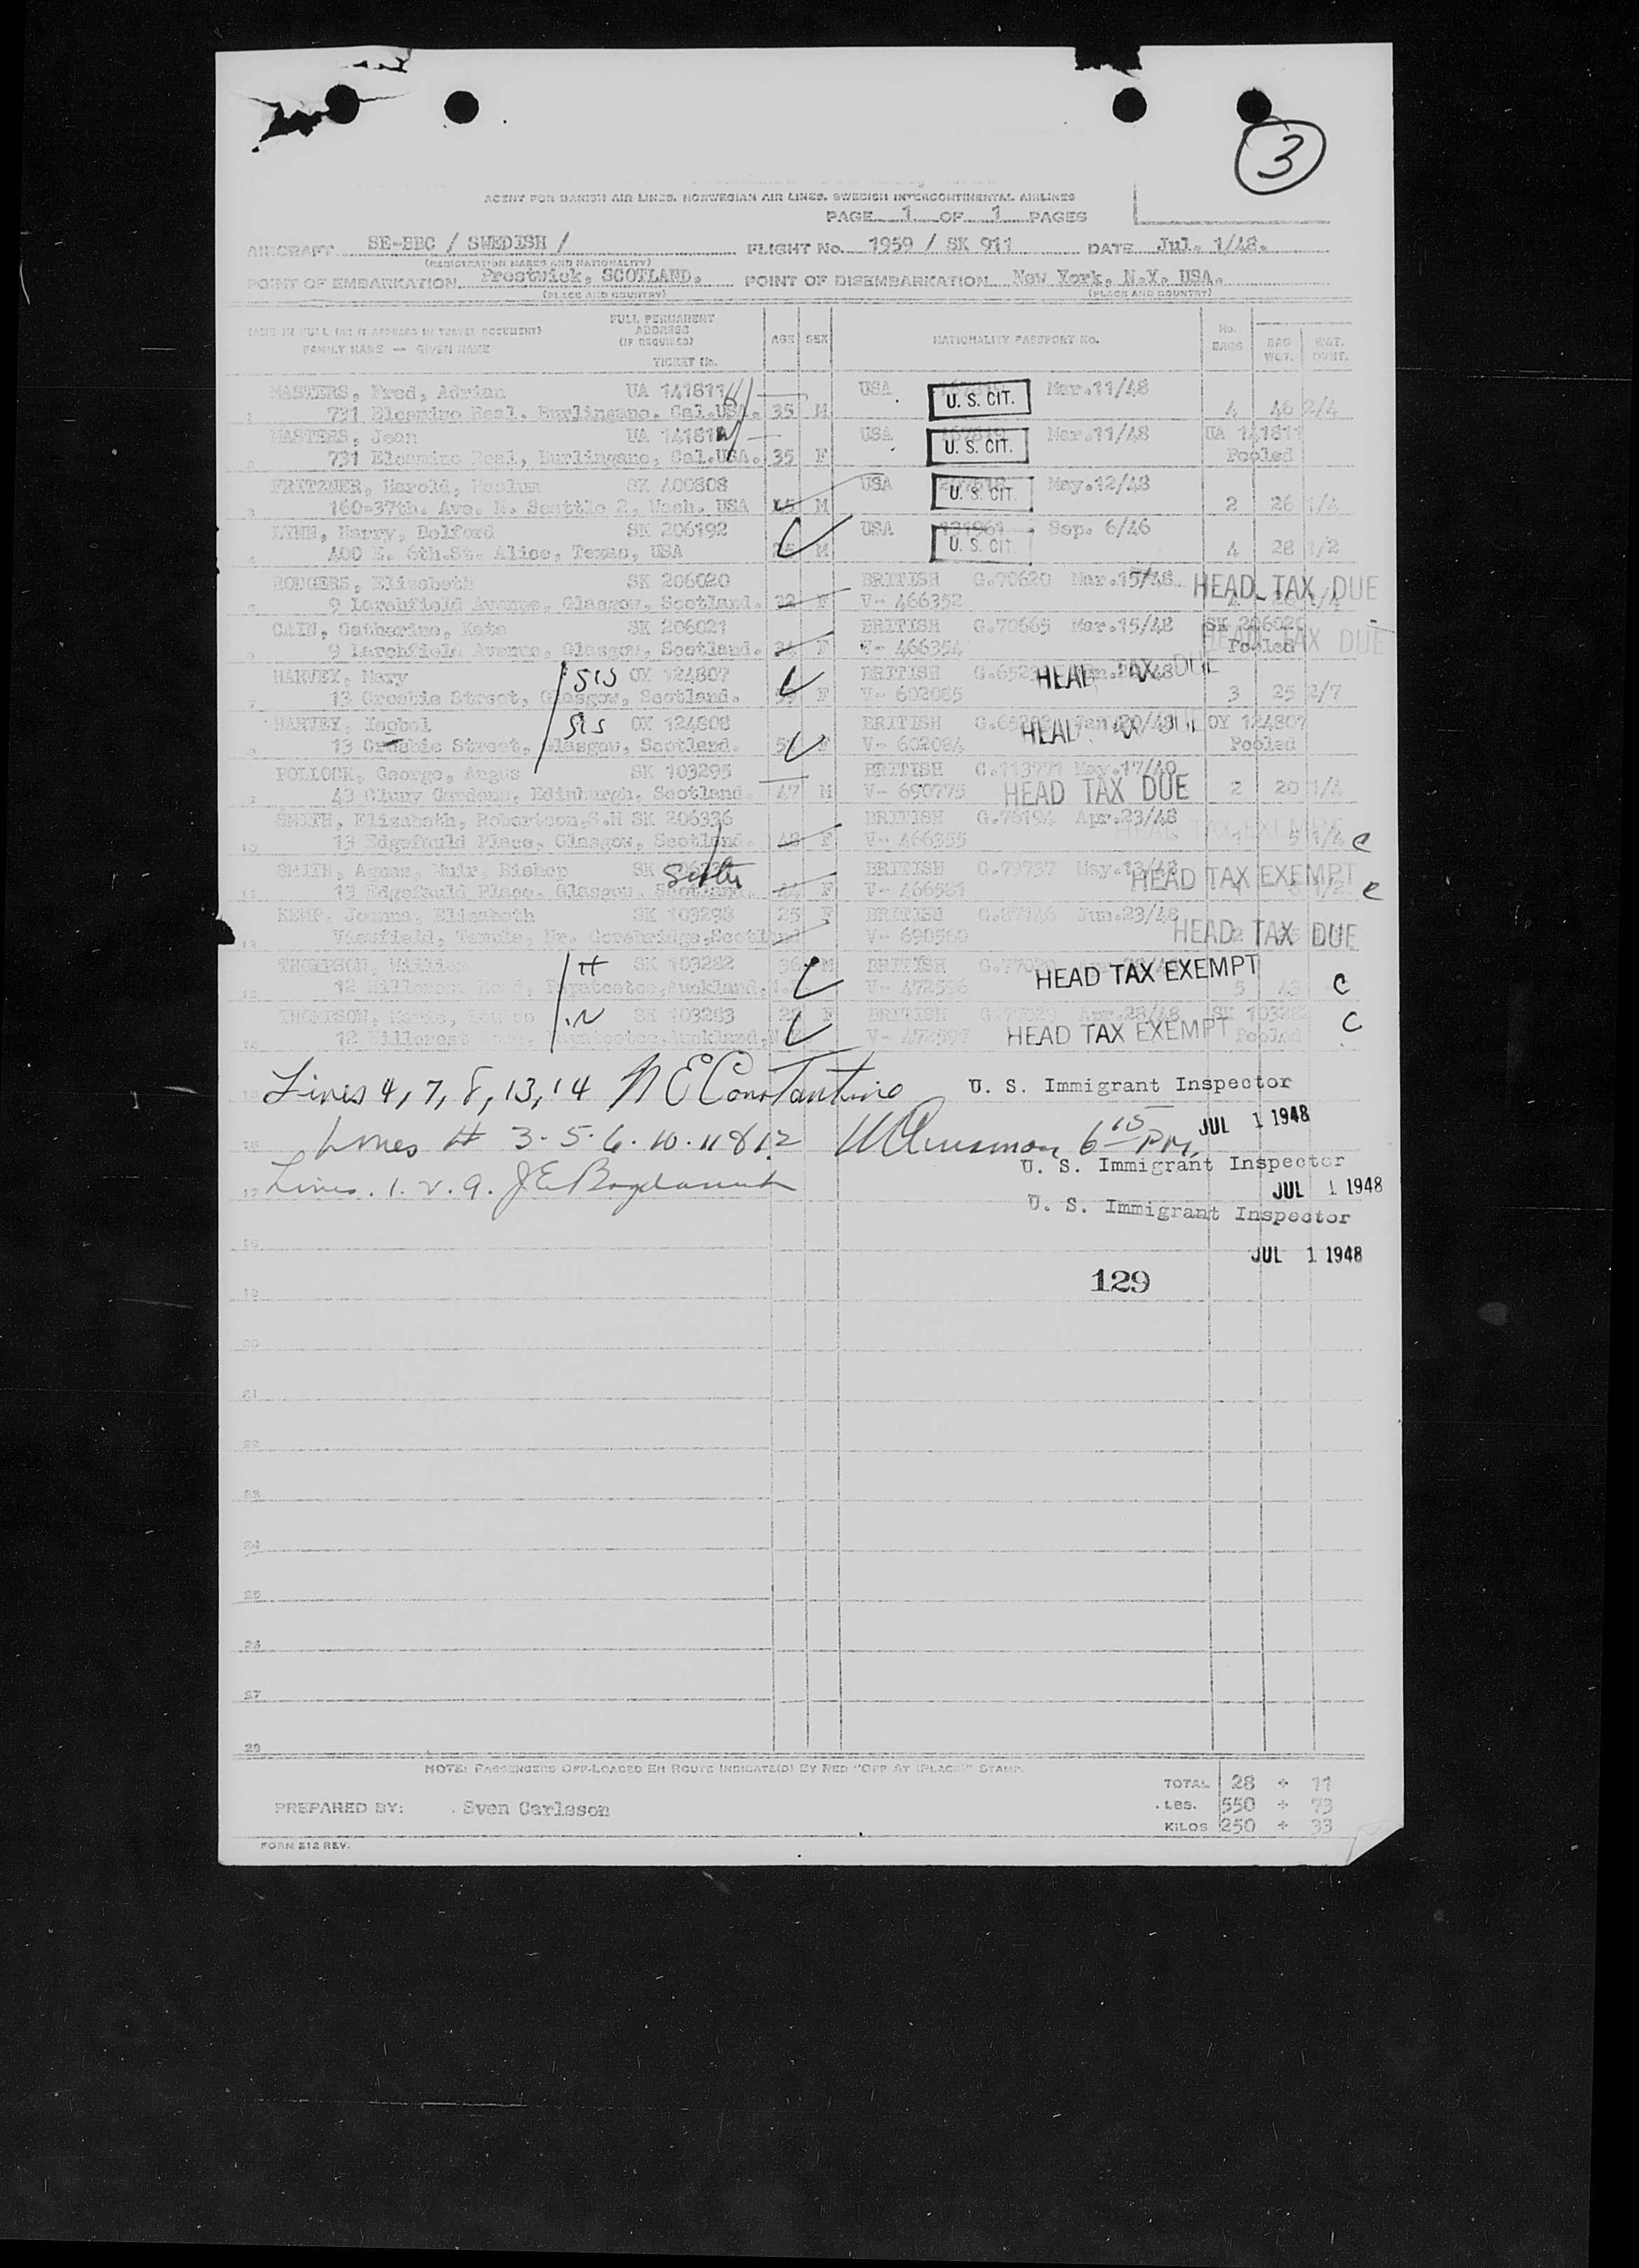 3
AGENT FOR DANISH AIR LINES, NORWEGIAN AIR LINES, SWEDISH INTERCONTINENTAL AIRLINES
PAGE 1 OF 1 PAGES
AIRCRAFT SE-BBC / SWEDISH / FLIGHT No. 1959 / SK 911 DATE Jul. 1/48.
(REGISTRATION MARKS AND NATIONALITY)
POINT OF EMBARKATION Prestwick, SCOTLAND. POINT OF DISEMBARKATION New York, N.Y. USA.
(PLACE AND COUNTRY) (PLACE AND COUNTRY)
NAME IN FULL (AS IT APPEARS IN TRAVEL DOCUMENT) FULL PERMANENT ADDRESS (IF REQUIRED) AGE SEX NATIONALITY PASSPORT No. No. BAGS BAG WGT. WGT.
FAMILY NAME — GIVEN NAME TICKET No.
MASTERS, Fred, Adrian UA 141811 USA U. S. CIT. Mar.11/48
1 731 Elcamino Real. Burlingame. Cal.USA. 35 M 4 46 2/4
MASTERS, Jean UA 141812 USA U. S. CIT. Mar.11/48 UA 141811
2 731 Elcamino Real, Burlingame, Cal.USA. 35 F Pooled
FRITZNER, Harold, SK 400808 USA U. S. CIT. May.12/48
3 160-37th. Ave. N. Seattle 2, Wash. USA M 2 26 1/4
LYNN, Harry, Dolford SK 206192 USA 131961 Sep. 6/46
4 400 E. 6th.St. Alice, Texas, USA M U. S. CIT 4 28 1/2
RODGERS, Elizabeth SK 206020 BRITISH G.70620 Mar.15/48 HEAD TAX DUE
5 9 Larchfield Avenue, Glasgow, Scotland. 32 F V- 466352
CAIN, Catharine, Kate SK 206021 BRITISH G.70665 Mar.15/48 SK 206020
6 9 Larchfield Avenue, Glasgow, Scotland. F V- 466354 Pooled HEAD TAX DUE
HARVEY, Mary SIS OY 124807 BRITISH HEAD TAX DUE
7 13 Crosbie Street, Glasgow, Scotland. F V- 602085 3 25 2/7
HARVEY, Isobel SIS OY 124808 BRITISH Jan.20/48 HEAD TAX DUE OY 124807
8 13 Crosbie Street, Glasgow, Scotland. F V- 602084 Pooled
POLLOCK, George, Angus SK 103295 BRITISH C.113771 May.17/40
9 43 Cluny Gardens, Edinburgh, Scotland. 47 M V- 690775 HEAD TAX DUE 2 20 1/4
SMITH, Elizabeth, Robertson,S.H SK 206336 BRITISH G.76194 Apr.23/48 HEAD TAX EXEMPT
10 13 Edgefauld Place, Glasgow, Scotland. 48 F V- 466355 1 5 1/4 C
SMITH, Agnes, Muir, Bishop SK Sister BRITISH G.79737 May.13/48 HEAD TAX EXEMPT
11 13 Edgefauld Place, Glasgow, Scotland. 44 F V- 466581 C
KEMP, Joanna, Elizabeth SK 103298 25 F BRITISH G.87146 Jun.23/48 HEAD TAX DUE
12 Viewfield, Temple, Nr. Gorebridge,Scotland V- 690560
THOMPSON, William H SK 103282 36 M BRITISH HEAD TAX EXEMPT
13 12 Hillcrest Road, Papatoetoe,Auckland, V- 472596 5 43 C
THOMPSON, Marie, Louise W SK 103283 F BRITISH G.77029 Apr.28/48 SK 103282
14 12 Hillcrest Road, Papatoetoe.Auckland, V- 472597 HEAD TAX EXEMPT Pooled C
15 Lines 4, 7, 8, 13, 14 N E Constantino U. S. Immigrant Inspector
JUL 1 1948
16 Lines # 3. 5. 6. 10. 11 & 12 6 15 PM.
U. S. Immigrant Inspector
JUL 1 1948
17 Lines. 1. 2. 9.
U. S. Immigrant Inspector
18
JUL 1 1948
129
19
20
21
22
23
24
25
26
27
28
NOTE: PASSENGERS OFF-LOADED EN ROUTE INDICATE(D) BY RED "OFF AT (PLACE)" STAMP.
TOTAL 28 + 11
PREPARED BY: Sven Carlsson LBS. 550 + 73
KILOS 250 + 33
FORM 212 REV.